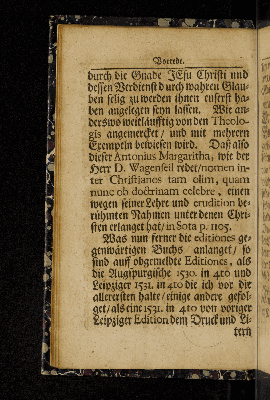 Vorrede.
durch die Gnade JEsu Christi und
dessen Verdienst durch wahren Glau-
ben selig zu werden ihnen euserst ha-
ben angelegen seyn lassen. Wie an-
derswo weitläufftig von den Theolo-
gis angemercket / und mit mehrern
Exempeln bewiesen wird. Daß also
dieser Antonius Margaritha, wie der
Herr D. Wagenseil redet / nomen in-
ter Christianos tam olim, quam
nunc ob doctrinam celebre, einen
wegen seiner Lehre und erudition be-
rühmten Nahmen unter denen Chri-
sten erlanget hat / in Sota p. 1105.
Was nun ferner die editiones ge-
genwärtigen Buchs anlanget / so
sind auff obgemeldte Editiones, als
die Augspurgische 1530. in 4to und
Leipziger 1531. in 4to die ich vor die
allerersten halte / einige andere gefol-
get / als eine 1531. in 4to von voriger
Leipziger Edition dem Druck und Li-
tern